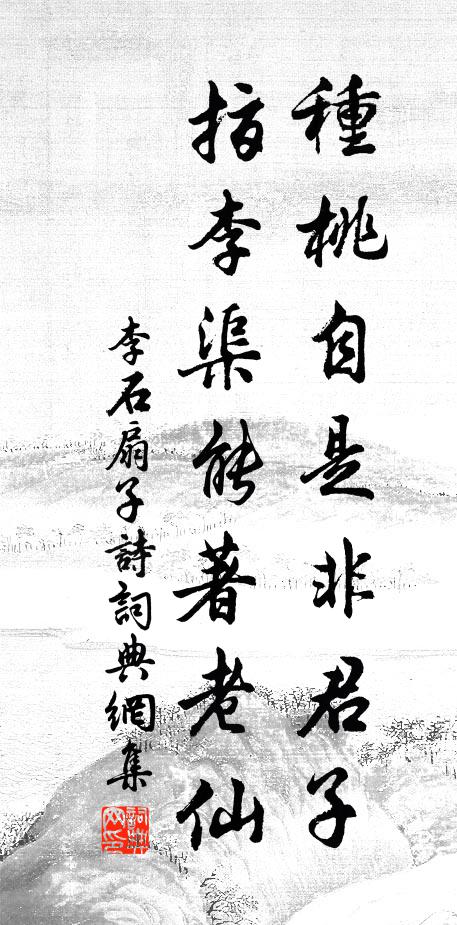 種桃自是非君子
指李渠能著老仙
李石扇子詩詞典網集